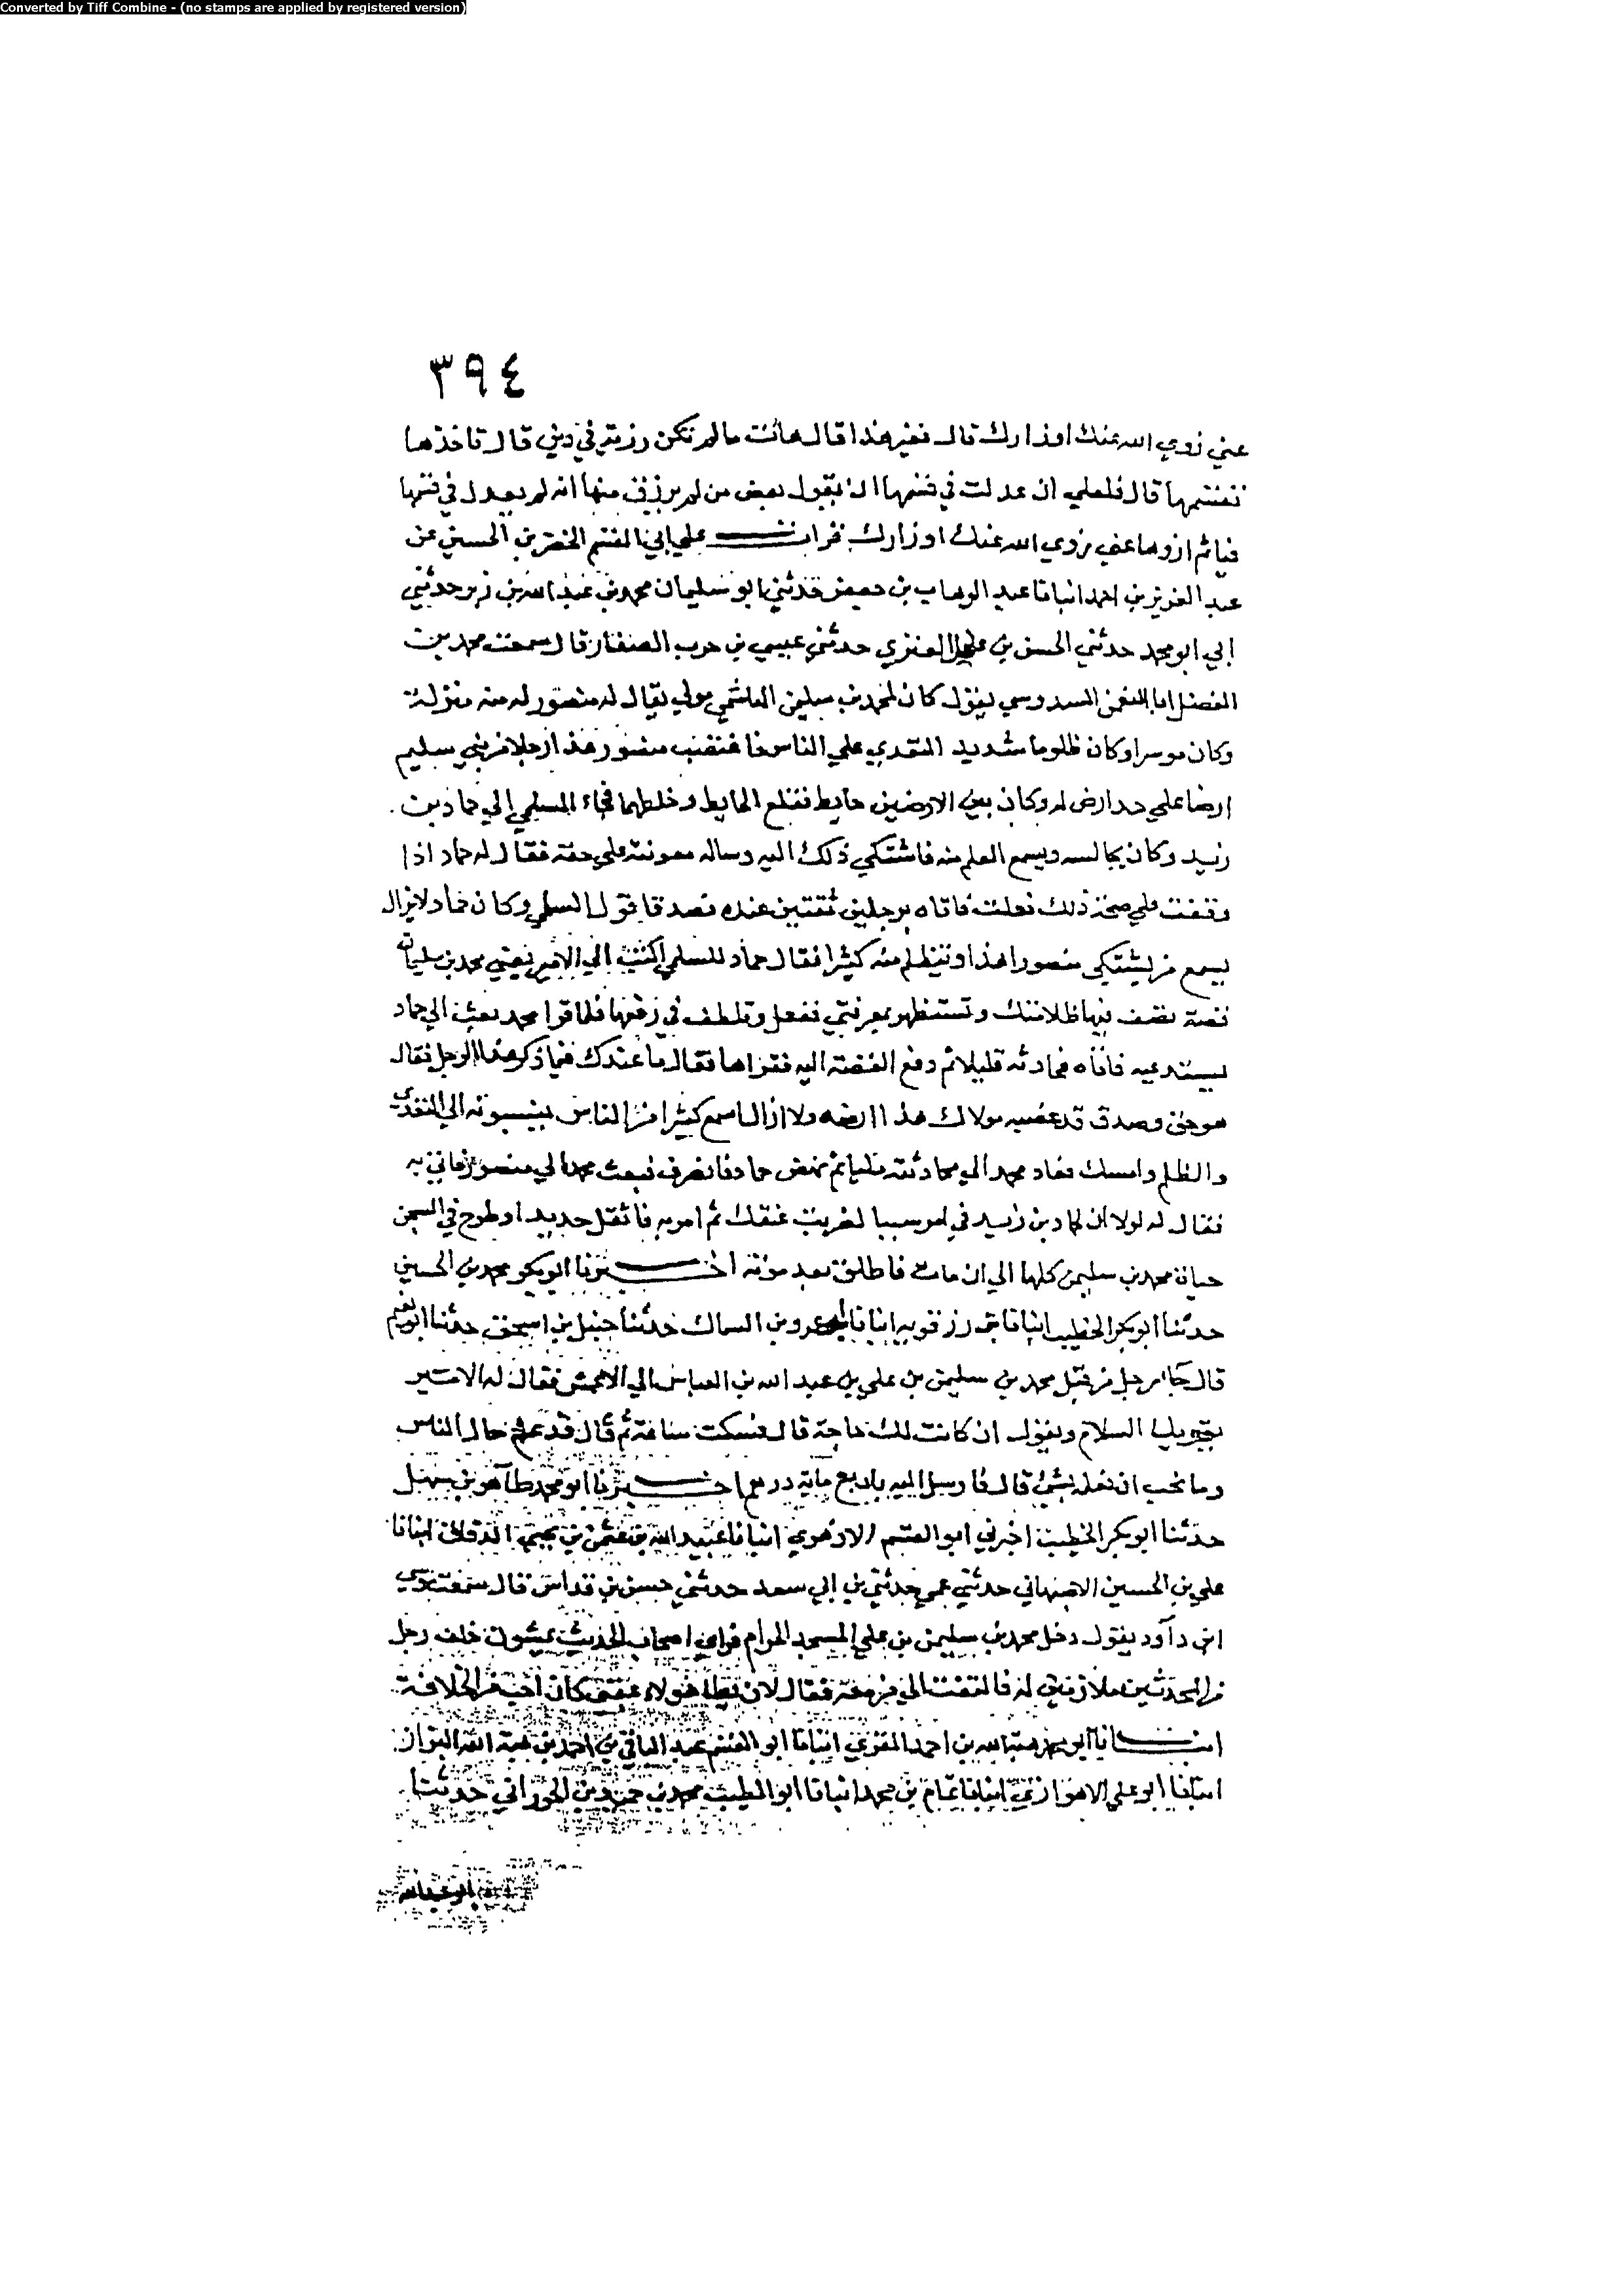 Converted by Tiff Combine - (no stamps are applied by registered version)
٣٩٤
عني زوي الله عنك اوزارك قال فغير هذا قال هات ما لم تكن رزية في دين قال تاخذها
تقتسمها قال فلعلي ان عدلت في قسمها ان يقول بعض من لم يرزق منها انه لم يعدل في قسمها
فياثم ازوها عني زوي الله عنك اوزارك قرات علي ابي القسم الخضر بن الحسين عن
عبد العزيز بن احمد انبانا عبد الوهاب بن جعفر حدثني ابو سليمان محمد بن عبد الله بن زبر حدثني
ابي ابو محمد حدثني الحسن بن عليل العنزي حدثني عيسي بن حرب الصفار قال سمعت محمد بن
الفضل ابا النعمن السدوسي يقول كان لمحمد بن سليمن الهاشمي مولي يقال له منصور له منه منزلة
وكان موسرا وكان ظلوما شديد التعدي علي الناس فاغتصب منصور هذا رجلا من بني سليم
ارضا علي حد ارض له وكان بين الارضين حايط فقلع الحايط وخلطهما فجاء السلمي الي حماد بن
زيد وكان يجالسه ويسمع العلم منه فاشتكي ذلك اليه وساله معونته علي حقه فقال له حماد اذا
وقفت علي صحة ذلك فعلت فاتاه برجلين ثقتين عنده فصدقا قول السلمي وكان حماد لا يزال
يسمع من يشتكي منصورا هذا ويتظلم منه كثيرا فقال حماد للسلمي اكتب الي الامير يعني محمد بن سليمان
قصة تصف فيها ظلامتك وتستظهر بمعرفتي ففعل وتلطف في رفعها فلما قرا محمد بعث الي حماد
يستدعيه فاتاه فحادثه قليلا ثم دفع القصة اليه فقراها فقال ما عندك فيما ذكر هذا الرجل فقال
هو حق وصدق قد غصبه مولاك هذا ارضه ولا ازال اسمع كثيرا من الناس ينسبونه الي التعدي
والظلم وامسك فعاد محمد الي محادثته مليا ثم نهض حماد فانصرف فبعث محمد الي منصور فاتي به
فقال له لولا ان لحماد بن زيد في امر سببا لضربت عنقك ثم امر به فاثقل حديدا وطرح في السجن
حياة محمد بن سليمن كلها الي ان مات فاطلق بعد موته اخبرنا ابو بكر محمد بن الحسين
حدثنا ابو بكر الخطيب انبانا بن رزقويه انبانا ابو عمرو بن السماك حدثنا حنبل بن اسحق حدثنا ابو نعيم
قال جاء رجل من قبل محمد بن سليمن بن علي بن عبد الله بن العباس الي الاعمش فقال له الامير
يقريك السلام ويقول ان كانت لك حاجة قال فسكت ساعة ثم قال قد علم حال الناس
وما نحب ان نعلمه بشي قال فارسل اليه باربع ماية درهم اخبرنا ابو محمد طاهر بن سهل
حدثنا ابو بكر الخطيب اخبرني ابو القسم الازهري انبانا عبيد الله بن عثمن بن يحيي الدقاق انبانا
علي بن الحسين الاصبهاني حدثني عمي حدثني بن ابي سعد حدثني حسن بن قداس قال سمعت موسي
ابن داود يقول دخل محمد بن سليمن بن علي المسجد الحرام فراي اصحاب الحديث يمشون خلف رجل
من المحدثين ملازمين له فالتفت الي من معه فقال لان يطا هولاء عقبي كان احب الي من الخلافة
انبانا ابو محمد هبة الله بن احمد المقري انبانا ابو القسم عبد الباقي بن احمد بن هبة الله البزاز
انبانا ابو علي الاهوازي انبانا تمام بن محمد انبانا ابو الطيب محمد بن حميد بن الحوراني حدثنا
ابو عبد الله